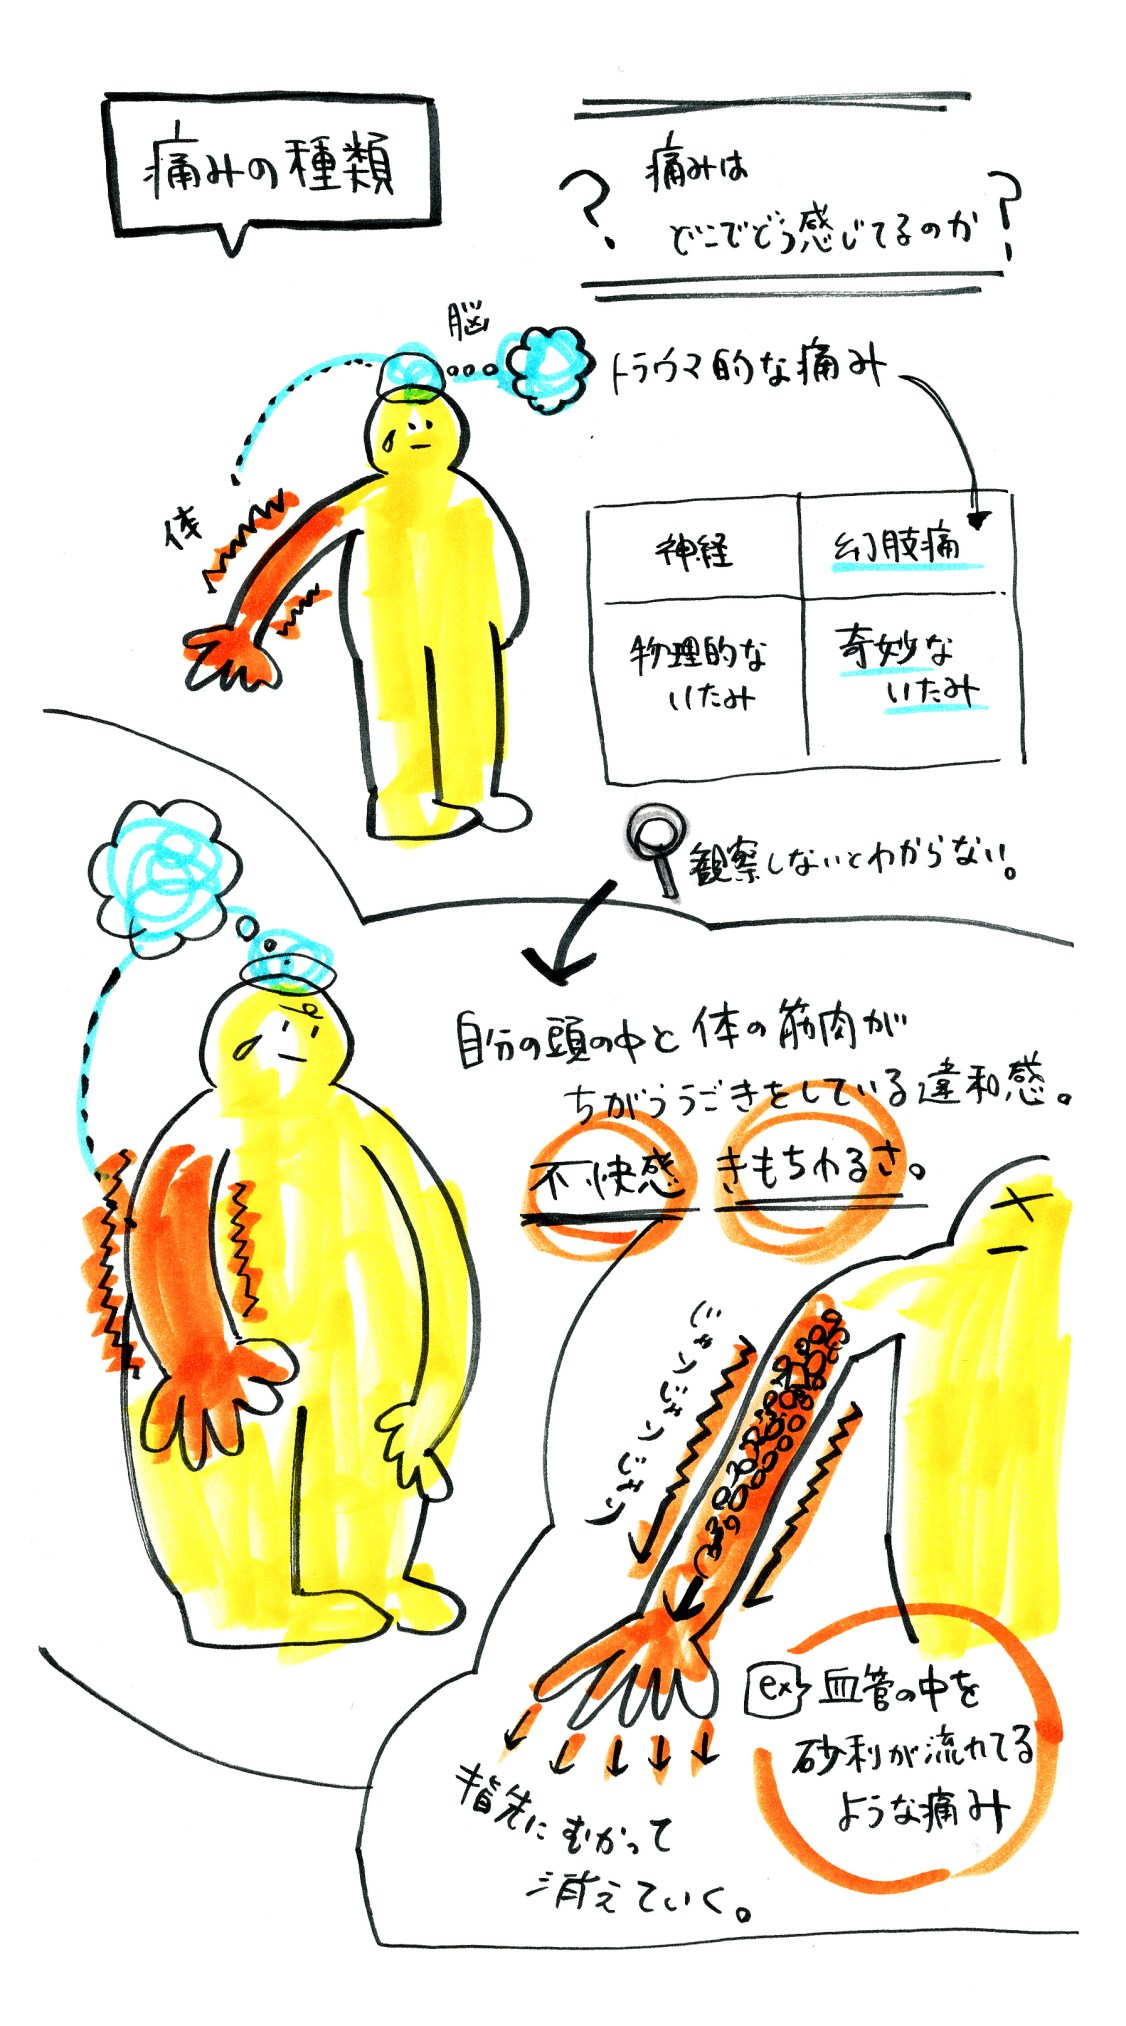 痛みの種類
痛みは
どこでどう感じてるのか
? ?
脳
トラウマ的な痛み
体
神経
幻肢痛
物理的な
いたみ
奇妙な
いたみ
観察しないとわからない。
自分の頭の中と体の筋肉が
ちがううごきをしている違和感。
不快感 きもちわるさ。
じゃりじゃりじゃり
ex 血管の中を
砂利が流れてる
ような痛み
指先にむかって
消えていく。